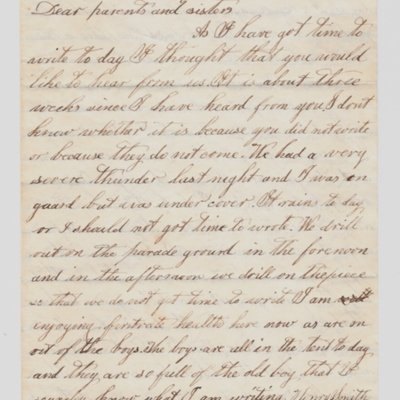 Dear parents and sister
As I have got time to
write to day I thought that you would
like to hear from us. It is about three
weeks since I have heard from you, I dont
know whether it is because you did not write
or because they do not come. We had a very
severe thunder last night and I was on
gaurd but was under cover. It rains to day
or I should not got time to wrote. We drill
out on the parade ground in the forenoon
and in the afternoon we drill on the piece
so that we do not get time to write I am
enjoying firstrate health here now as are
out of the boys. The boys are all in the tent to day
and they are so full of the old boy that I
know what I am writing. Henry Smith